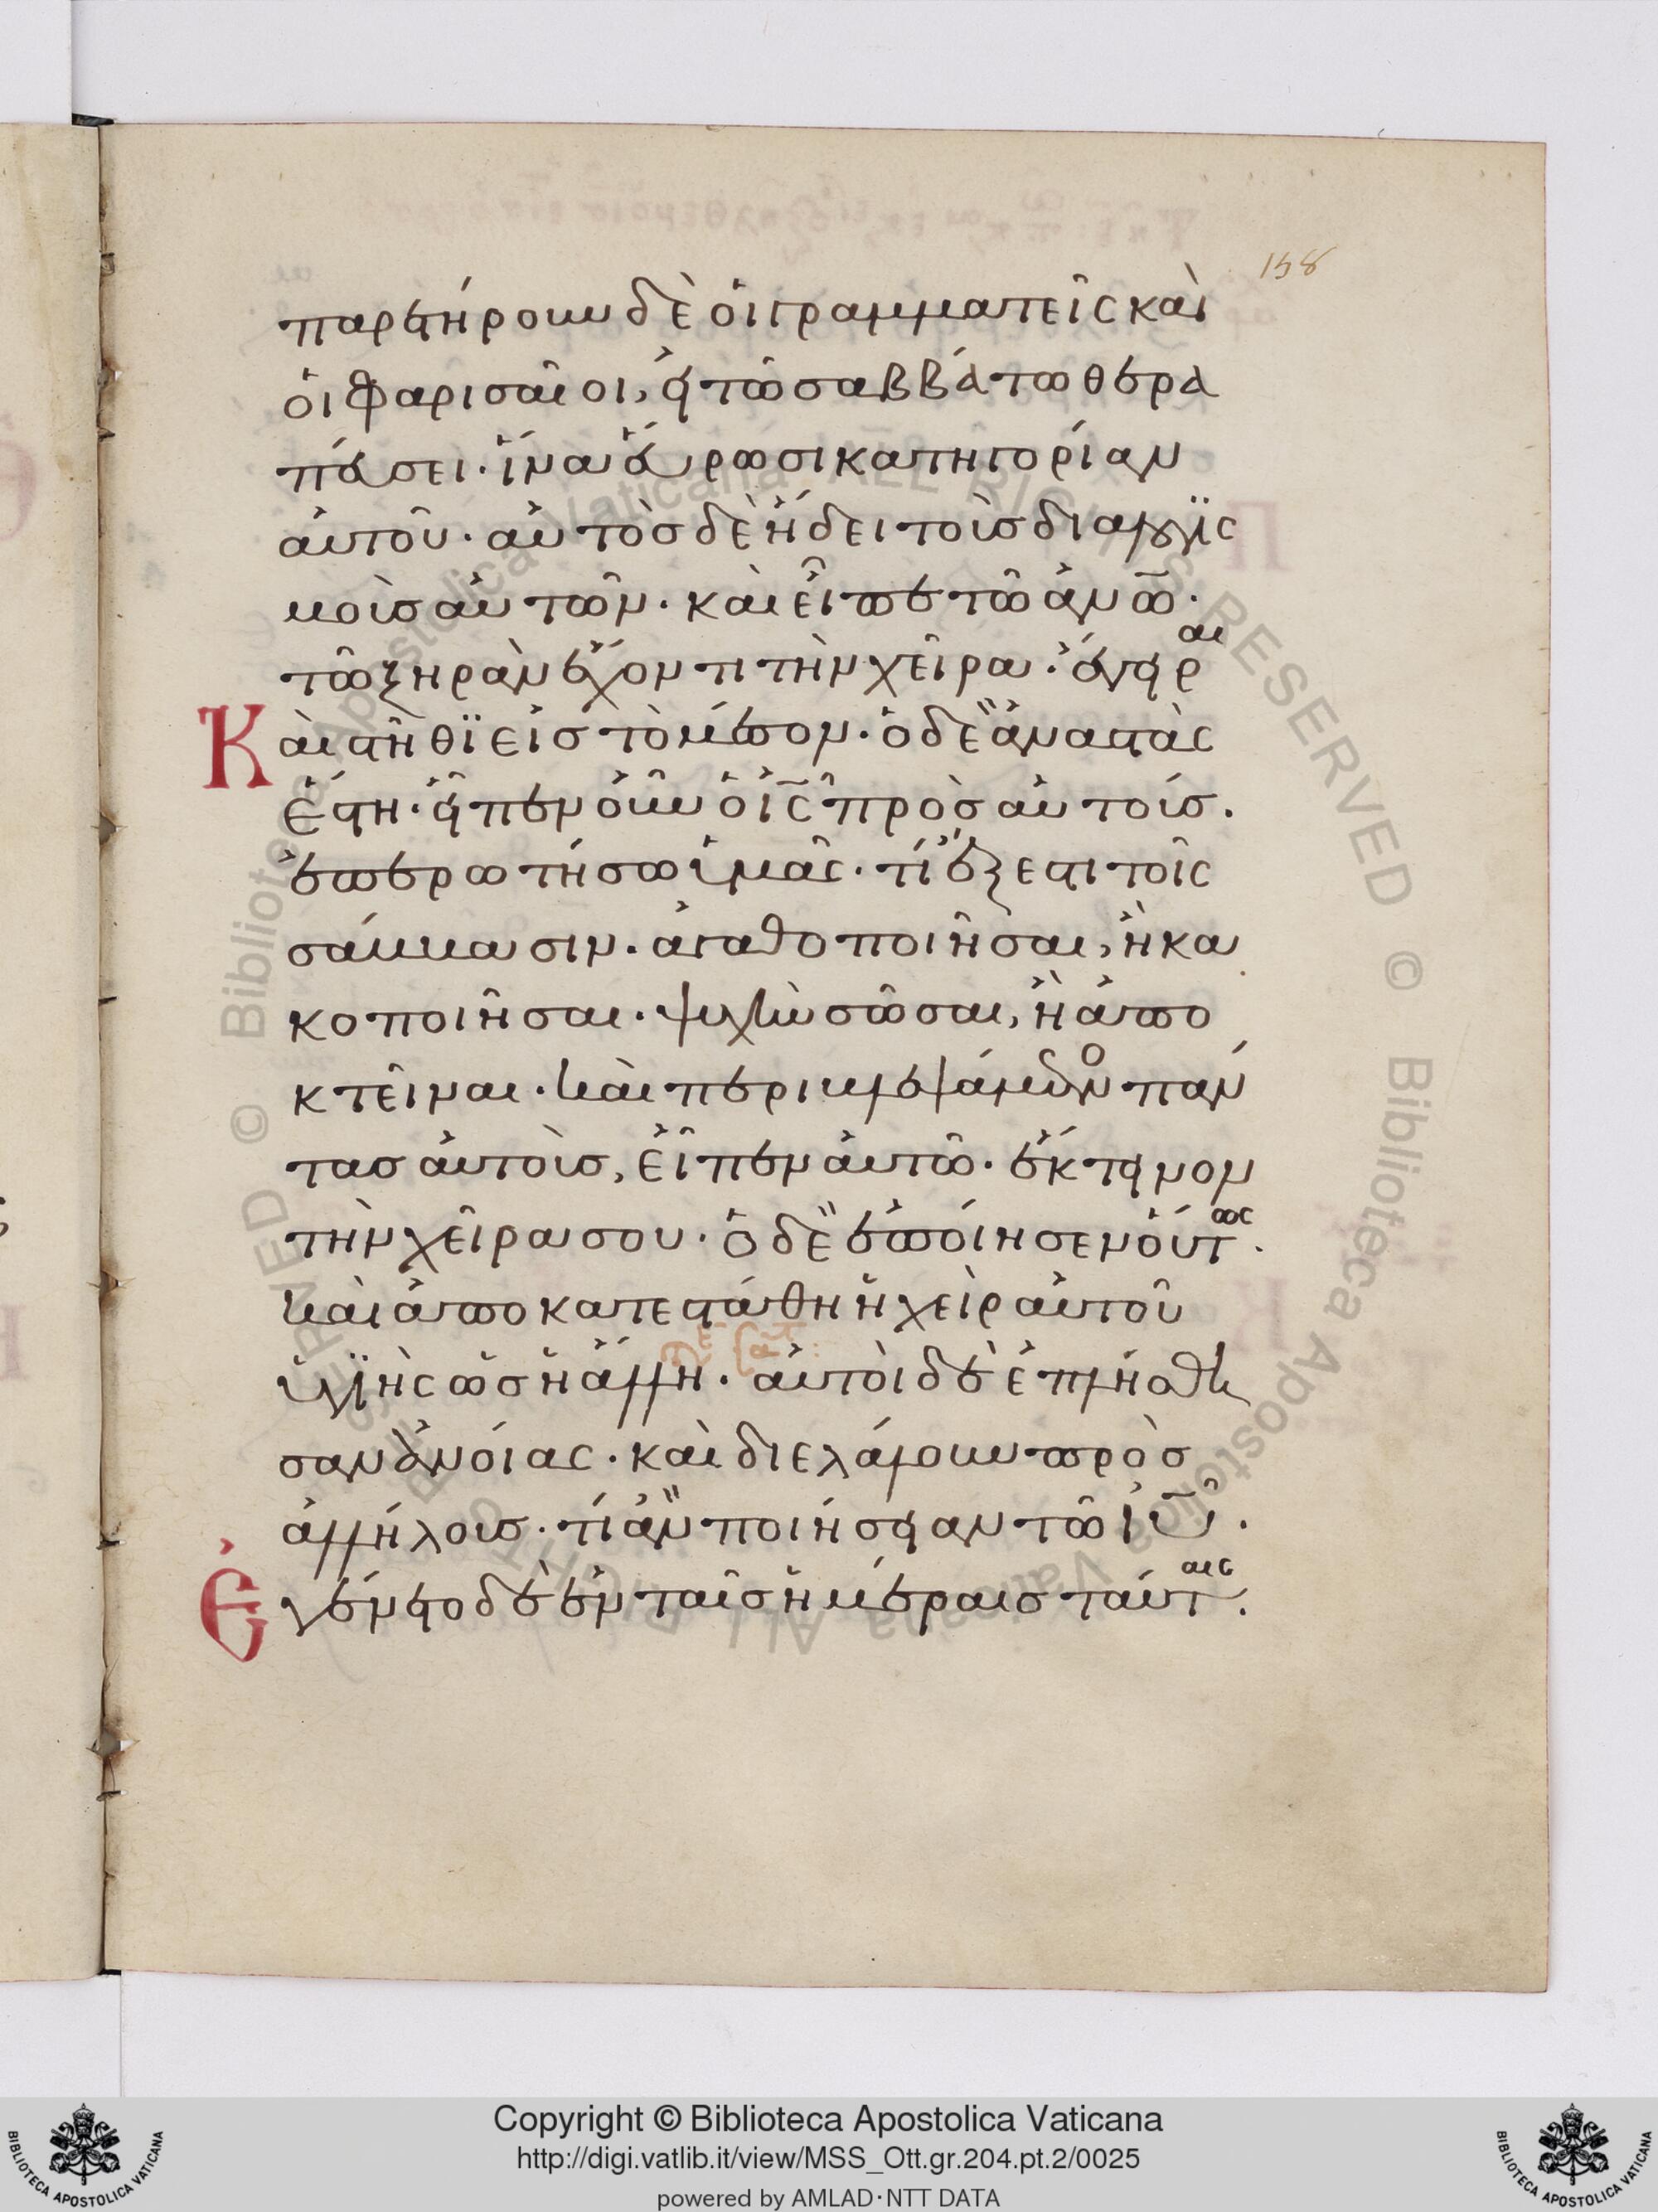 158
παρετήρουν δὲ οἱ γραμματεῖς καὶ
οἱ φαρισαῖοι, εἰ τῶ σαββάτω θερα
πεύσει· ἵνα εὕρωσι κατηγορίαν
αὐτοῦ· αὐτὸσ δὲ ἤδει τοὺσ διαλογϊς
μοὺσ αὐτῶν· καὶ εἶπε τῶ ἀνω̅·
τῶ ξηρὰν ἔχοντι τὴν χεῖρα· ἔγειραι
Καὶ στῆθϊ εἰσ τὸ μέσον· ὁ δὲ ἀναστὰς
ἔστη· εἶπεν οὖν ὁ ις̅ πρὸσ αὐτούσ·
ἐπερωτήσω ὑμᾶς· τί ἔξεστι τοῖς
σάββασιν· ἀγαθοποιῆσαι, ἢ κα
κοποιῆσαι· ψυχὴν σῶσαι, ἢ ἀπο
κτεῖναι· καὶ περιβλεψάμενος πάν
τασ αὐτοὺσ, εἶπεν αὐτῶ· ἔκτεινον
τὴν χεῖρα σου· ὁ δὲ ἐποίησεν οὕτως·
καὶ ἀποκατεστάθη ἡ χεὶρ αὐτοῦ
ὑγϊὴς ὡσ ἡ ἄλλη· αὐτοὶ δὲ ἐπλήσθη
σαν ἀνοίας· καὶ διελάλουν πρὸσ
ἀλλήλουσ· τί ἂν ποιήσειαν τῶ ιυ̅·
Ἐγένετο δὲ ἐν ταῖσ ἡμέραισ ταύταις·
Copyright © Biblioteca Apostolica Vaticana
http://digi.vatlib.it/view/MSS_Ott.gr.204.pt.2/0025
powered by AMLAD·NTT DATA